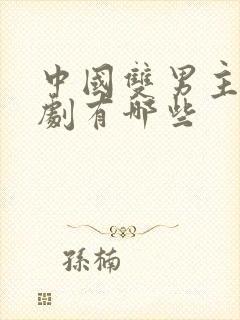 中國雙男主
劇有哪些
孫楠